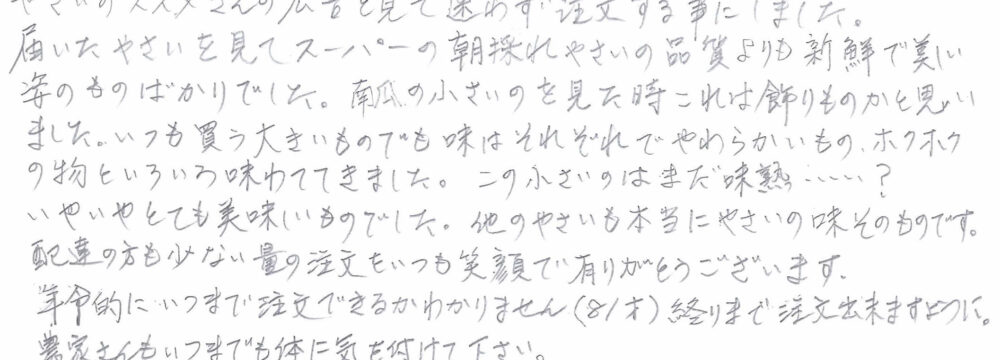 やさいのススメさんの広告を見て迷わず注文する事にしました。
届いたやさいを見てスーパーの朝採れやさいの品質よりも新鮮で美しい
姿のものばかりでした。南瓜の小さいのを見た時これは飾りものかと思い
ました。いつも買う大きいものでも味はそれぞれでやわらかいもの、ホクホク
の物といろいろ味わててきました。この小さいのはまだ味熟……?
いやいやとても美味しいものでした。他のやさいも本当にやさいの味そのものです。
配達の方も少ない量の注文をいつも笑顔で有りがとうございます。
年令的にいつまで注文できるかわかりません(81才)終りまで注文出来ますように。
農家さんもいつまでも体に気を付けて下さい。